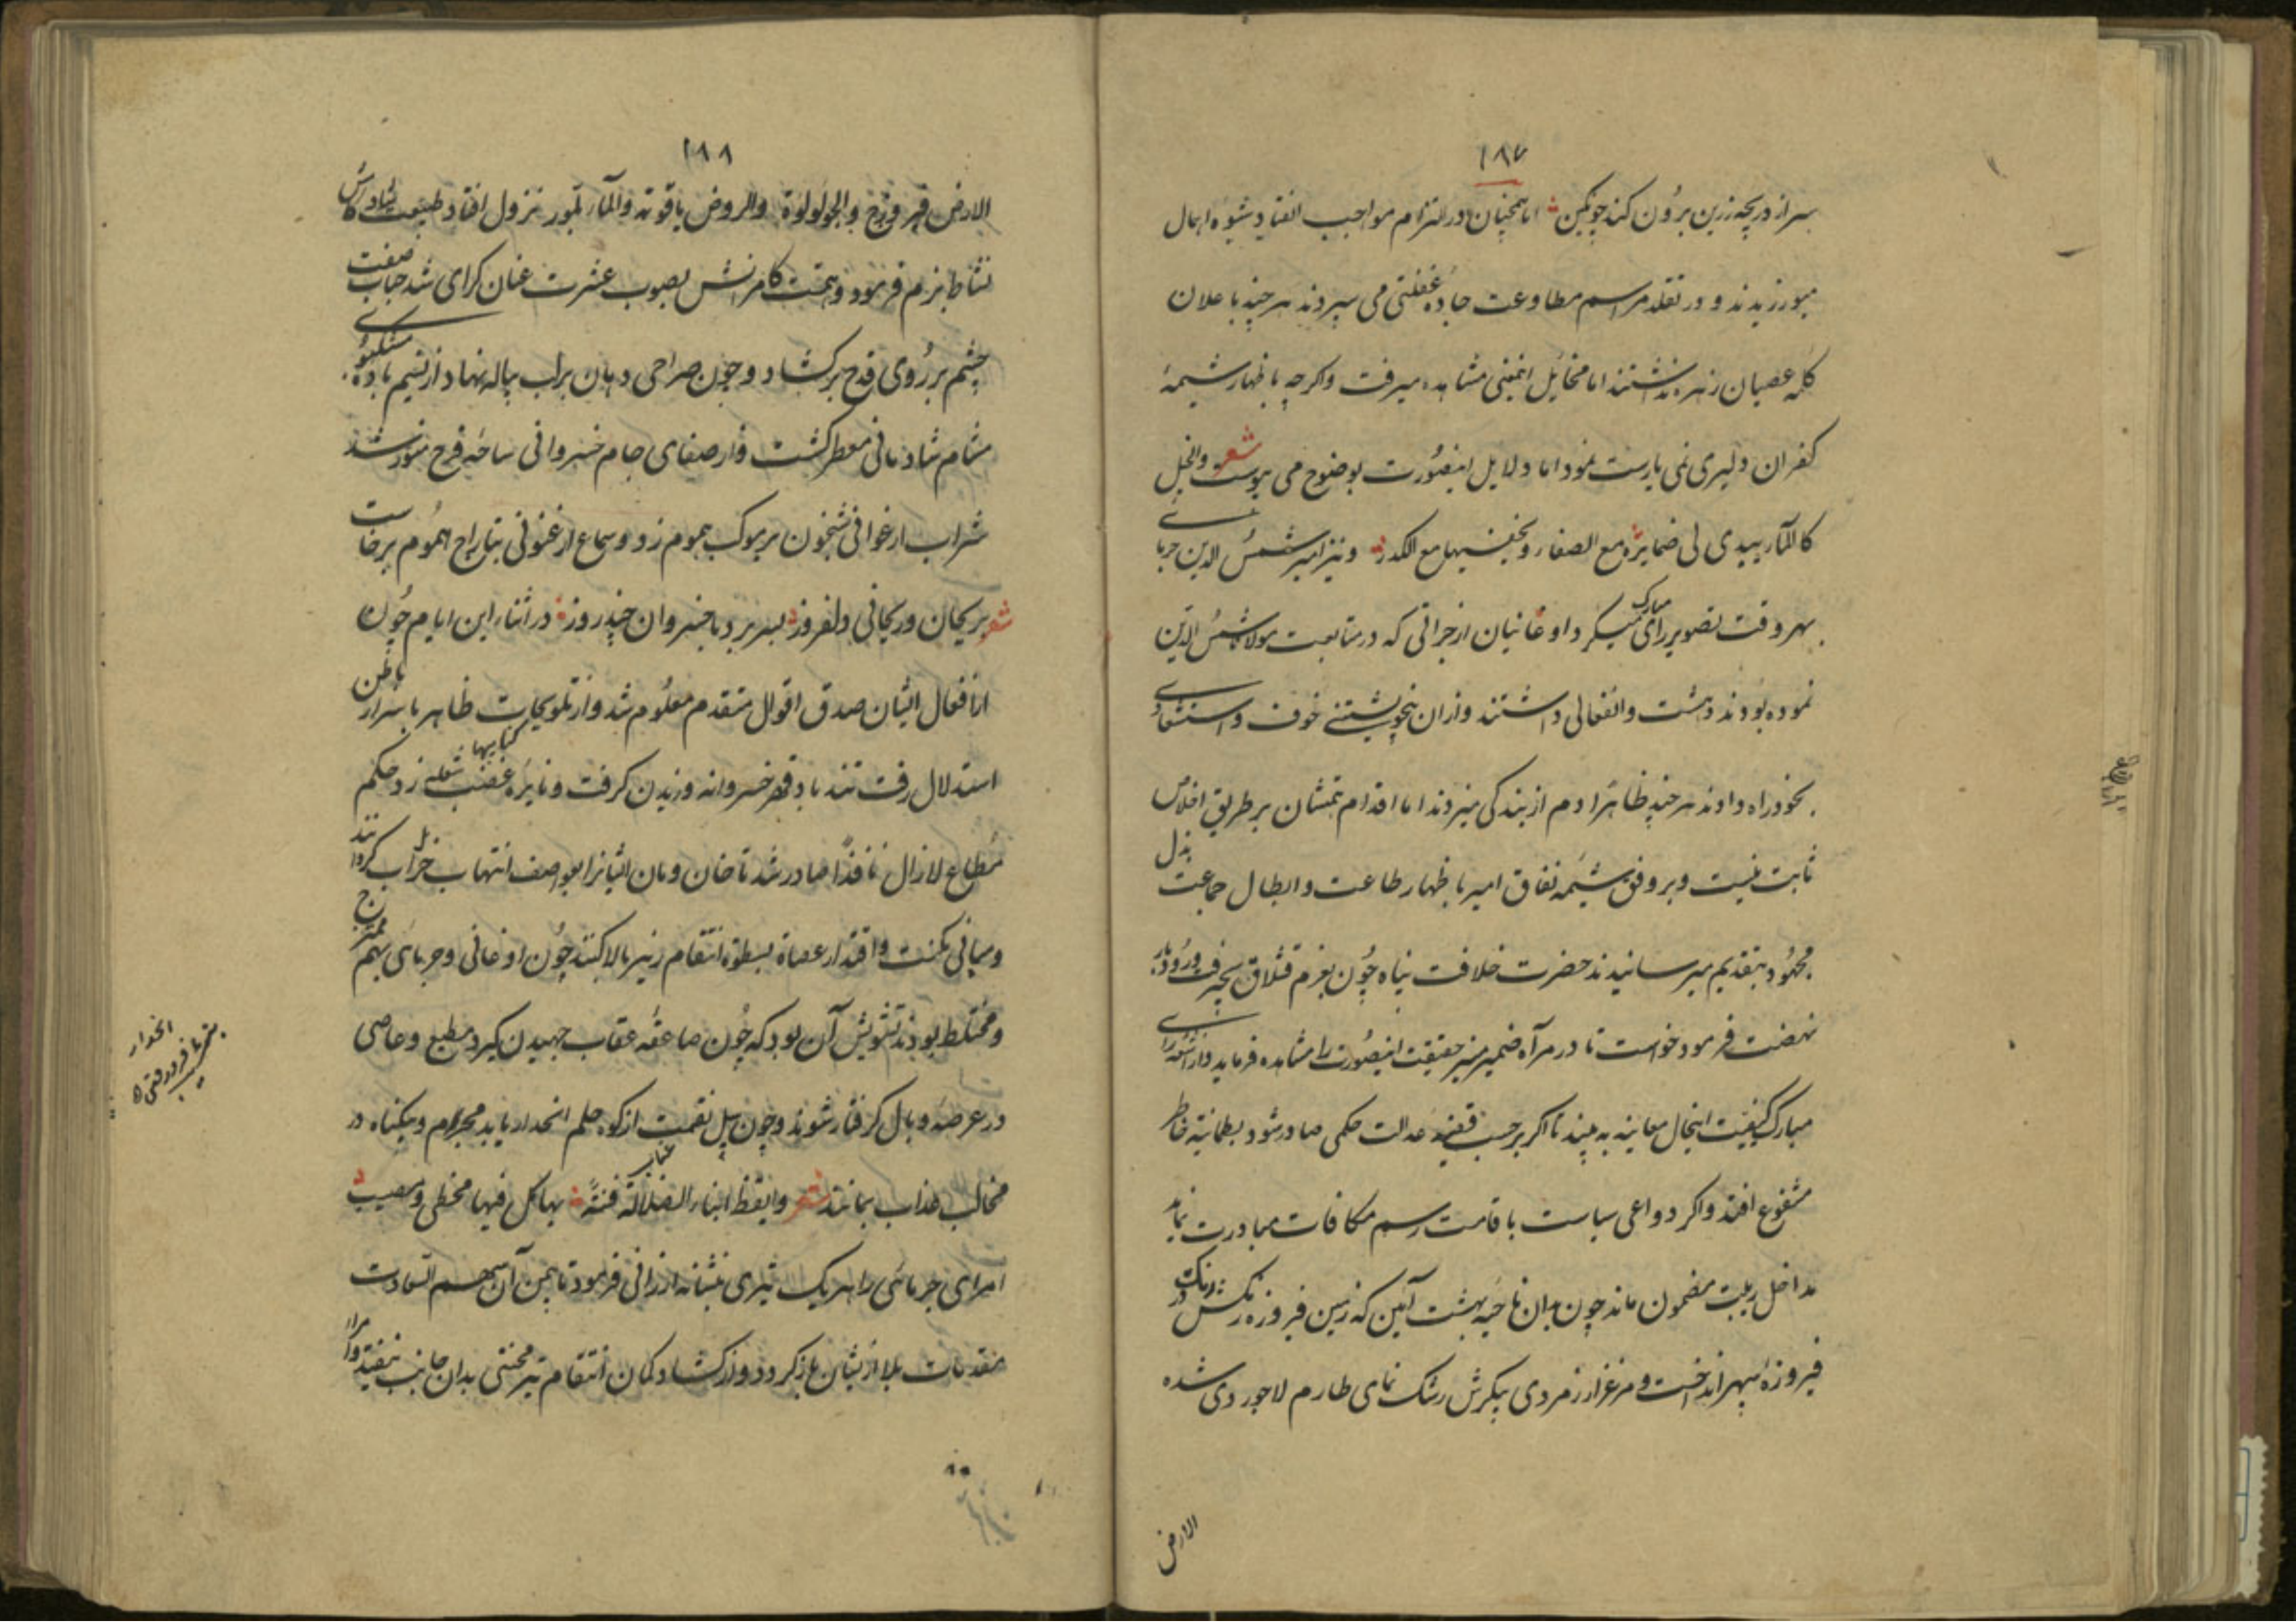 ۱۸۷
سر از دریچه زرین برون کند چو نکین اما همچنان در التزام مواجب انقیاد شیوه اهمال
میورزیدند و در تقلد مراسم مطاوعت جاده غفلتی می سپردند هر چند باعلان
کلمه عصیان زهره نداشتند اما مخایل اینمعنی مشاهده میرفت و اکرچه باظهار شیمهٔ
کفران دلیری نمی یارست نمود اما دلایل اینصورت بوضوح می پیوست شعر والخل
کالمآء یبدی لی ضمایره مع الصفاء ویخفیها مع الکدر و نیز امیر شمس الدین جرمائی
بهر وقت تصویر رای مبارک میکرد و اوغانیان از جراتی که در متابعت مولانا شمس الدین
نموده بودند دهشت و انفعالی داشتند و از ان خوف و استشعاری
بخود راه دادند هر چند ظاهرا دم از بندکی میزدند اما اقدام همتشان بر طریق اخلاص
ثابت نیست و بر وفق شیمه نفاق امیر باظهار طاعت و ابطال جماعت بذل
مجهود بتقدیم میرسانیدند حضرت خلافت پناه چون بعزم قشلاق بجیرفت و رودبار
نهضت فرمود خواست تا در مرآه ضمیر منیر حقیقت اینصورت را مشاهده فرماید و از اشعه رای
مبارک کیفیت اینحال معاینه به بیند تا اکر بر حسب قضیه عدالت حکمی صادر شود بطمانینه خاطر
مشفوع افتد و اکر دواعی سیاست باقامت رسم مکافات مبادرت نماید
مداخل ریبت مضمون ماند چون بدان ناحیه بهشت آیین که زمین فیروزه رنکش زنک در
فیروزهٔ سپهر انداخت و مرغزار زمردی پیکرش رشک نمای طارم لاجوردی شده
الارض
۱۸۸
الارض فیروزج والجو لولوة والروض یاقوته والمآء بلور نزول افتاد طبیعت
نشاط بزم فرمود و همت کامرانش بصوب عشرت عنان کرای شد حباب صفت
چشم بر روی قدح برکشاد و چون صراحی دهان بر لب پیاله نهاد از نسیم باده مشکبوی
مشام شادمانی معطر کشت و از صفای جام خسروانی ساحه فرح منور شد
شراب ارغوانی شبخون بر موکب هموم زد و سماع ارغنونی بتاراج هموم برخاست
شعر بریحان و ریحانی دلفروز بسر برد با خسروان چند روز در اثناء این ایام چون
از افعال ایشان صدق اقوال متقدم معلوم شد و از تلویحات ظاهر باسرار باطن
استدلال رفت تند باد قهر خسروانه وزیدن کرفت و نایره غضب شعله زد حکم
مطاع لازال نافذا صادر شد تا خان و مان ایشانرا بعواصف انتهاب خراب کردانند
و مبانی مکنت و اقتدار عصاة بسطوة انتقام زیر بالا کنند چون اوغانی و جرمائی بهم ممتزج
و مختلط بودند تشویش آن بود که چون صاعقه عقاب جهیدن کیرد مطیع و عاصی
در عرصه وبال کرفتار شوند و چون سیل نقمت از کوه حلم انحدار یابد مجرم و بیکناه در
مخالب عذاب بمانند شعر وایقظ ابناء الضلالة فتنة بها کل فیها مخطی ومصیب
امرای جرمائی را هر یک تیری نشانه ارزانی فرمود تا بیمن آن سهم السعادت
مقدمات بلا از یشان باز کردد و از کشاد کمان انتقام تیر محنتی بدان جانب نیفتد
انحدار